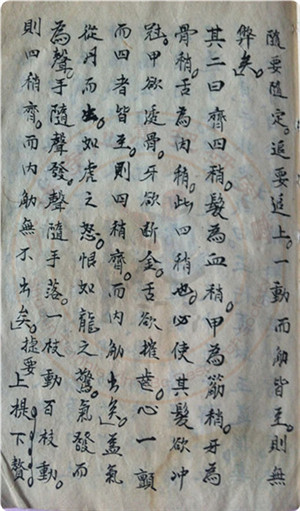 隨要隨定。追要追上。一動而勁皆至。則無
弊矣。
其二曰齊四稍。髮為血稍。甲為筋稍。牙為
骨稍。舌為肉稍。此四稍也。必使其髮欲冲
冠。甲欲透骨。牙欲断金。舌欲摧齒。心一顫
而四者皆至。則四稍齊。而内勁出矣。盖氣
從丹而出。如虎之怒。恨如龍之驚。氣發而
為聲。手隨聲發。聲隨手落。一枝動百枝動。
則四稍齊。而内勁無不出矣。捷要 上提下贊